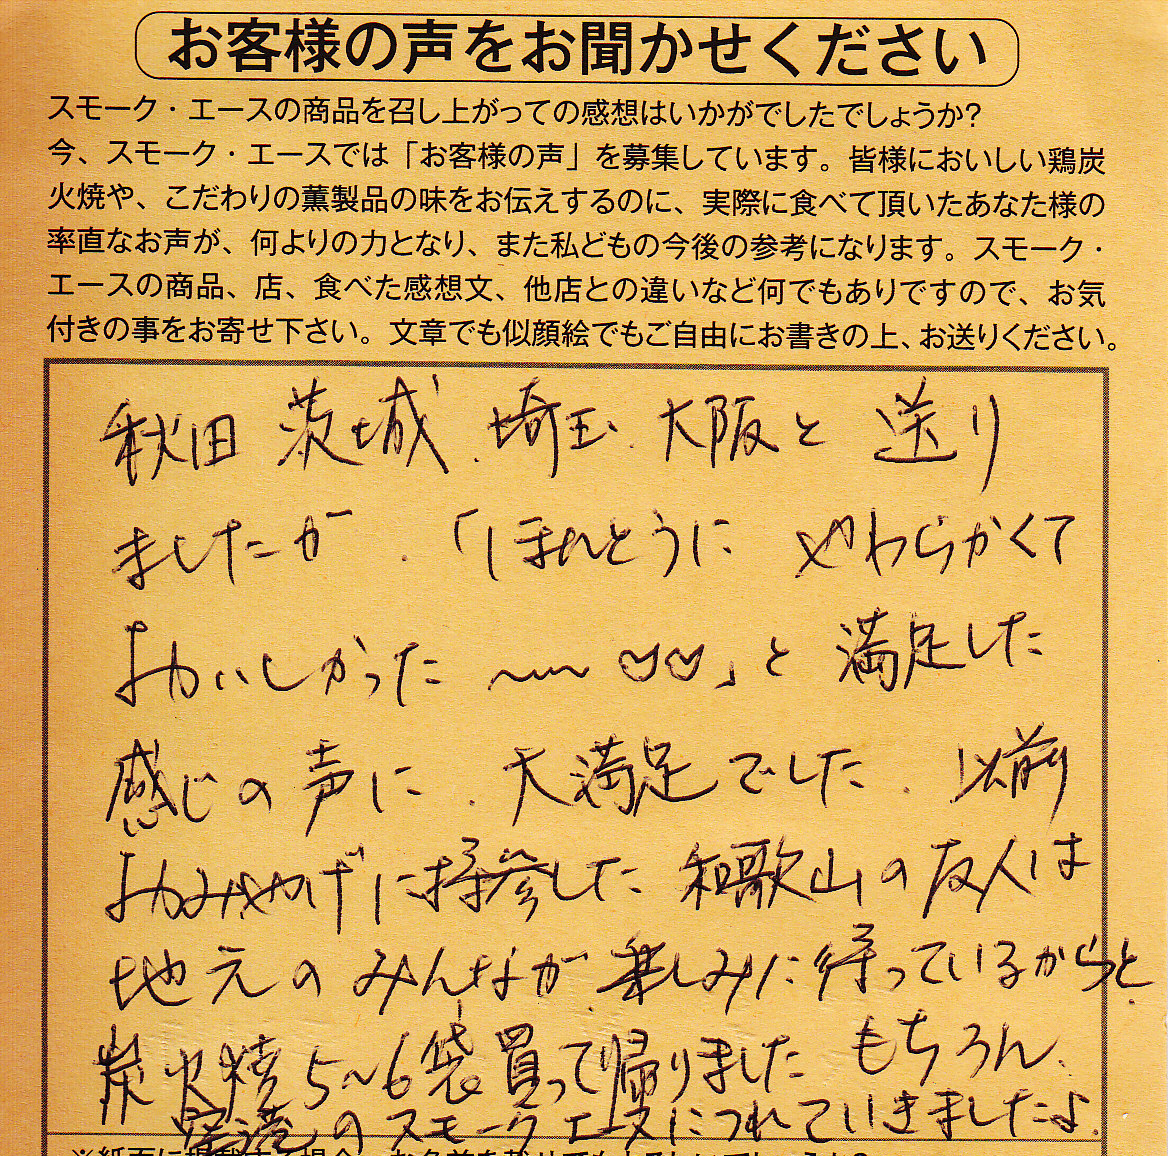 お客様の声をお聞かせください
スモーク・エースの商品を召し上がっての感想はいかがでしたでしょうか?
今、スモーク・エースでは「お客様の声」を募集しています。皆様においしい鶏炭
火焼や、こだわりの薫製品の味をお伝えするのに、実際に食べて頂いたあなた様の
率直なお声が、何よりの力となり、また私どもの今後の参考になります。スモーク・
エースの商品、店、食べた感想文、他店との違いなど何でもありですので、お気
付きの事をお寄せ下さい。文章でも似顔絵でもご自由にお書きの上、お送りください。
秋田 茨城 埼玉 大阪と 送り
ましたが、「ほんとうに やわらかくて
おいしかった 〜〜 ♡♡」と 満足した
感じの声に、大満足でした。以前
おみやげに持参した 和歌山の友人は
地元のみんなが 楽しみに 待っているからと
炭火焼 5〜6袋 買って帰りました もちろん
空港のスモークエースにつれていきましたよ。